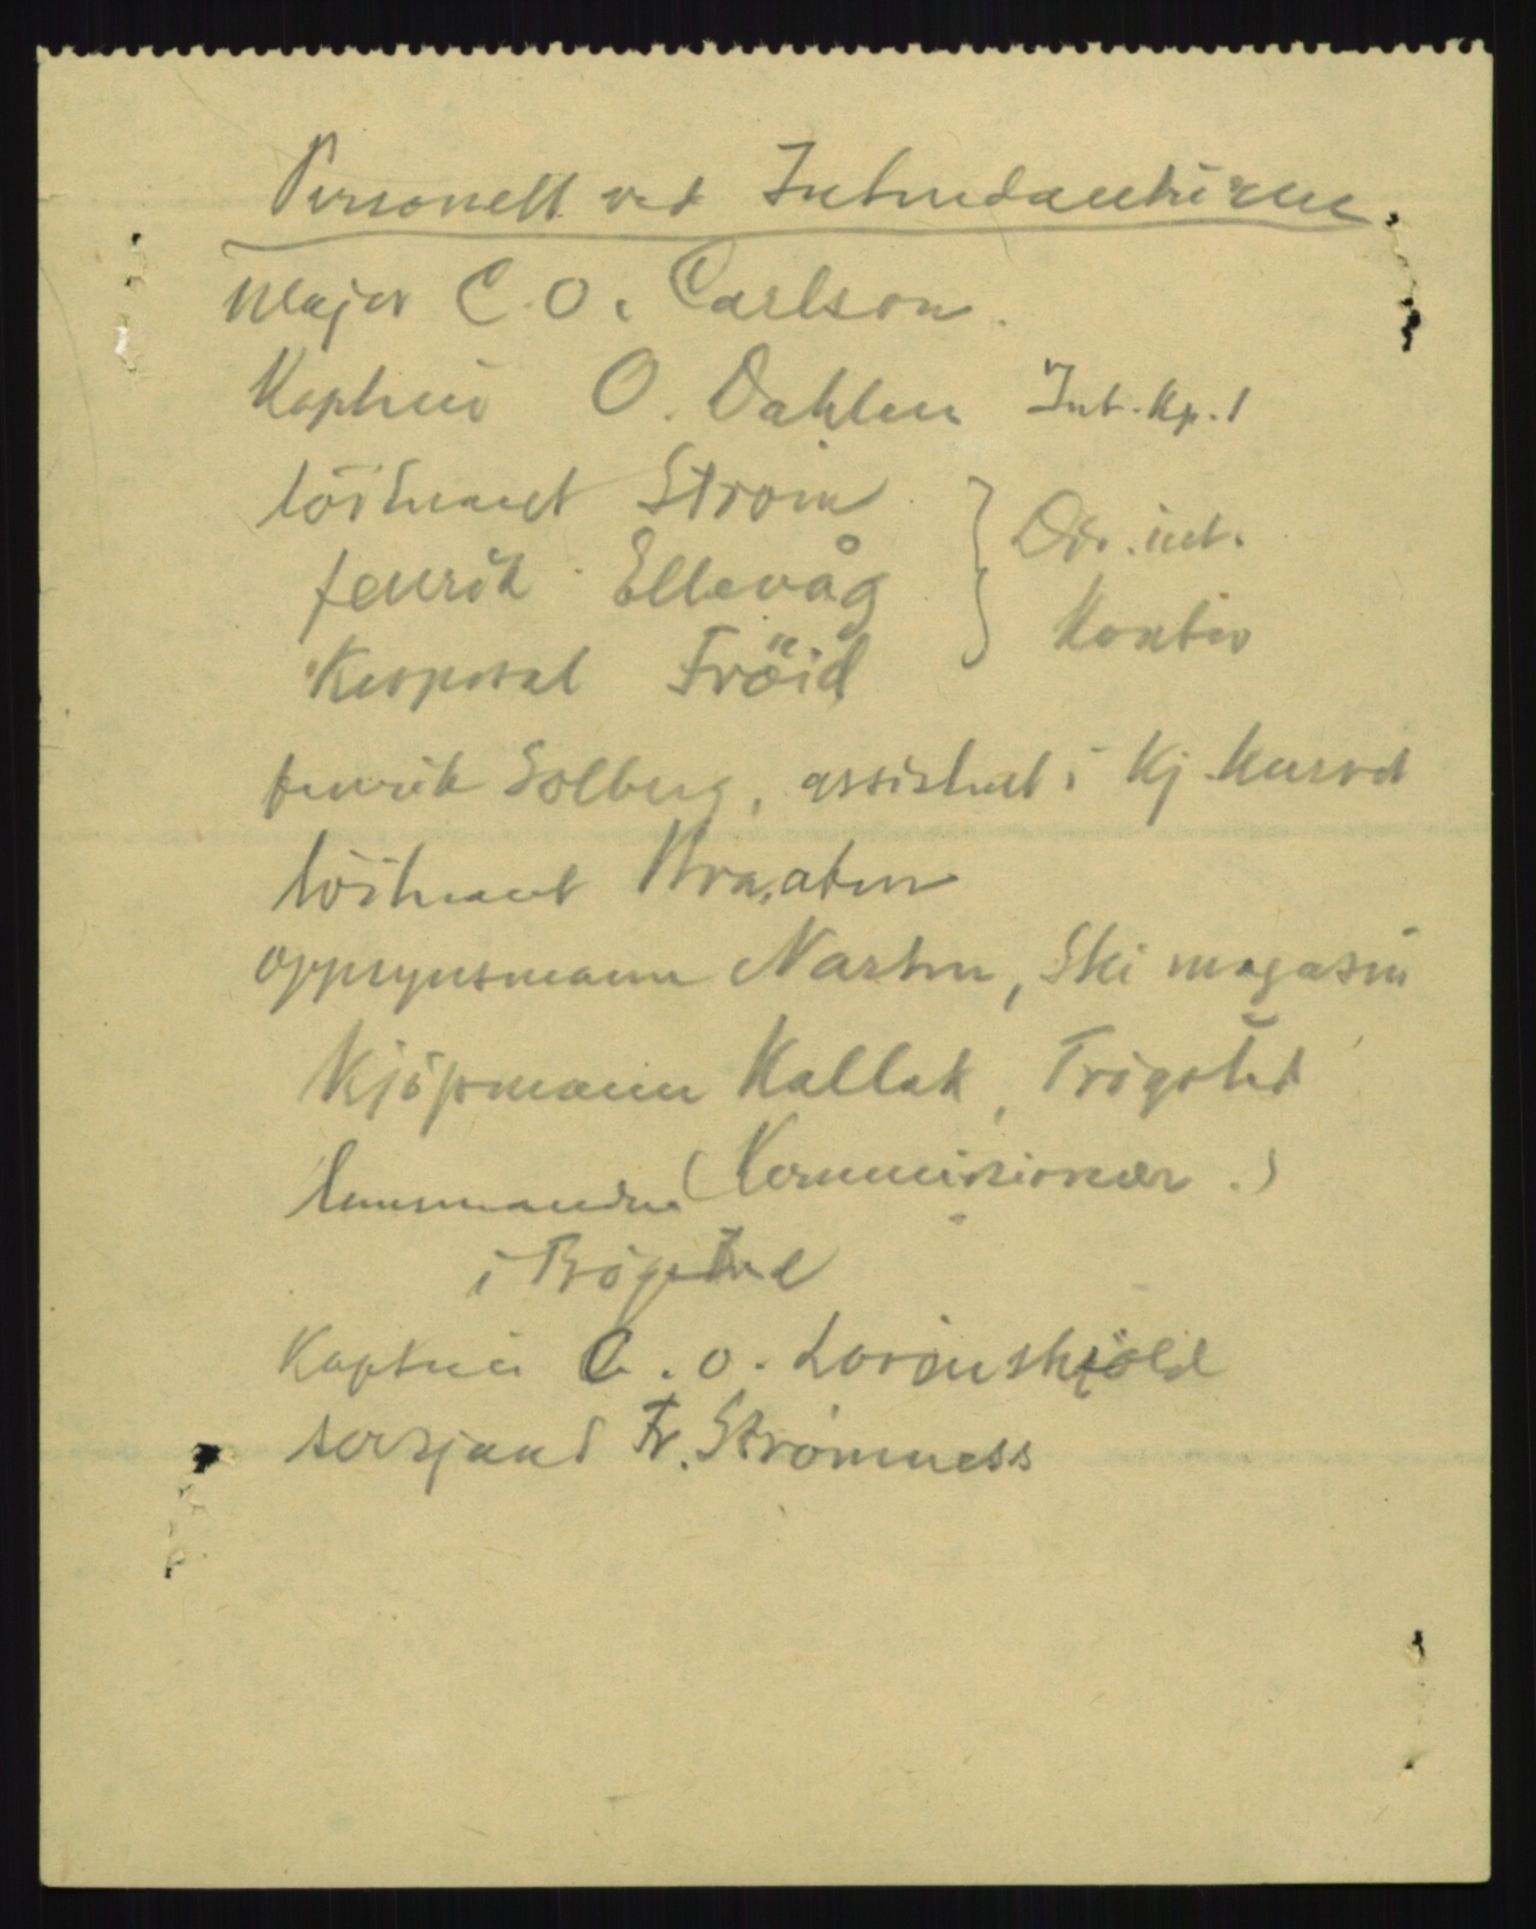 Personell ved Intendanturen.
Major C. O. Carlson.
Kaptein O. Dahlen Int. kp. 1
löitnant Strøm
fenrik Ellevåg } Div. int.
Korporal Fröid } Kontor
fenrik Solberg, assistent i Kj.
löitnant Braaten
oppsynsmann Narten, Ski magasin
Kjöpmann Kallak, Trögsted
(Kommisionær.)
lensmanden
i Trögstad
Kaptein C. O. Lövenskjöld
sersjant Fr. Strömness